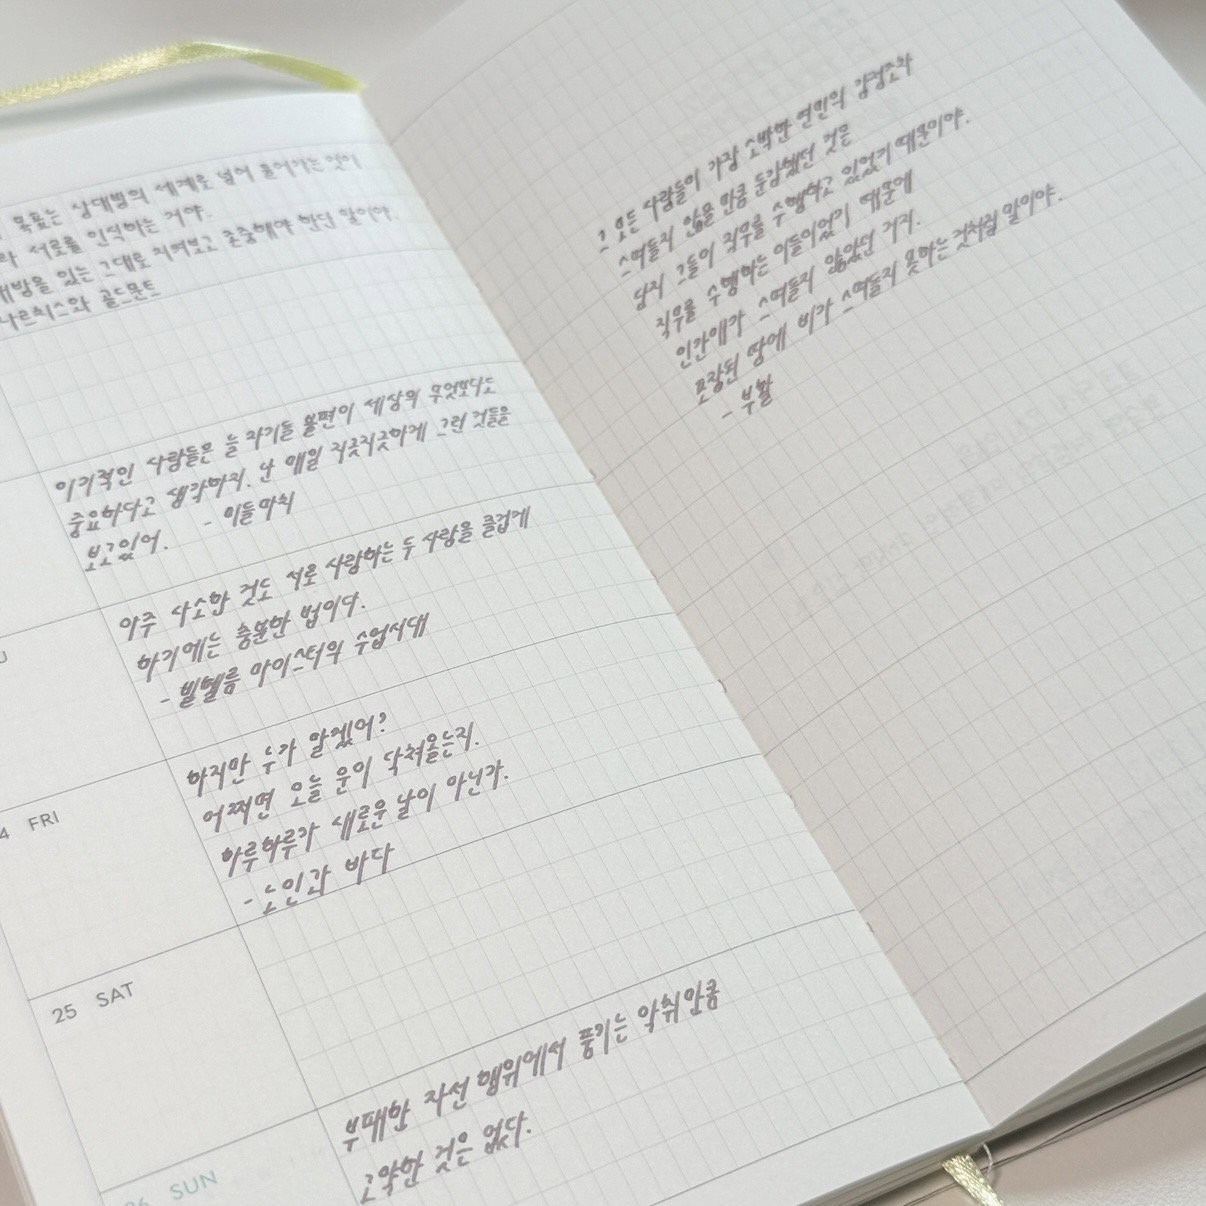 목표는 상대방의 세계로 넘어 들어가는 것이
서로를 인식하는 거야.
있는 그대로 지켜보고 존중해야 한단 말이야.
나르치스와 골드문트
이기적인 사람들은 늘 자기들 불편이 세상의 무엇보다도
중요하다고 생각하지. 난 매일 지긋지긋하게 그런 것들을
보고있어. - 이들마치
아주 사소한 것도 서로 사랑하는 두 사람을 즐겁게
하기에는 충분한 법이다.
- 빌헬름 마이스터의 수업시대
4 FRI
하지만 누가 알겠어?
어쩌면 오늘 운이 닥쳐올는지.
하루하루가 새로운 날이 아닌가.
- 노인과 바다
25 SAT
26 SUN
부패한 자선 행위에서 풍기는 악취만큼
고약한 것은 없다.
그 모든 사람들이 가장 소박한 연민의 감정조차
스며들지 않을 만큼 둔감했던 것은
단지 그들이 직무를 수행하고 있었기 때문이야.
직무를 수행하는 이들이었기 때문에
인간애가 스며들지 않았던 거지.
포장된 땅에 비가 스며들지 못하는 것처럼 말이야.
- 부활